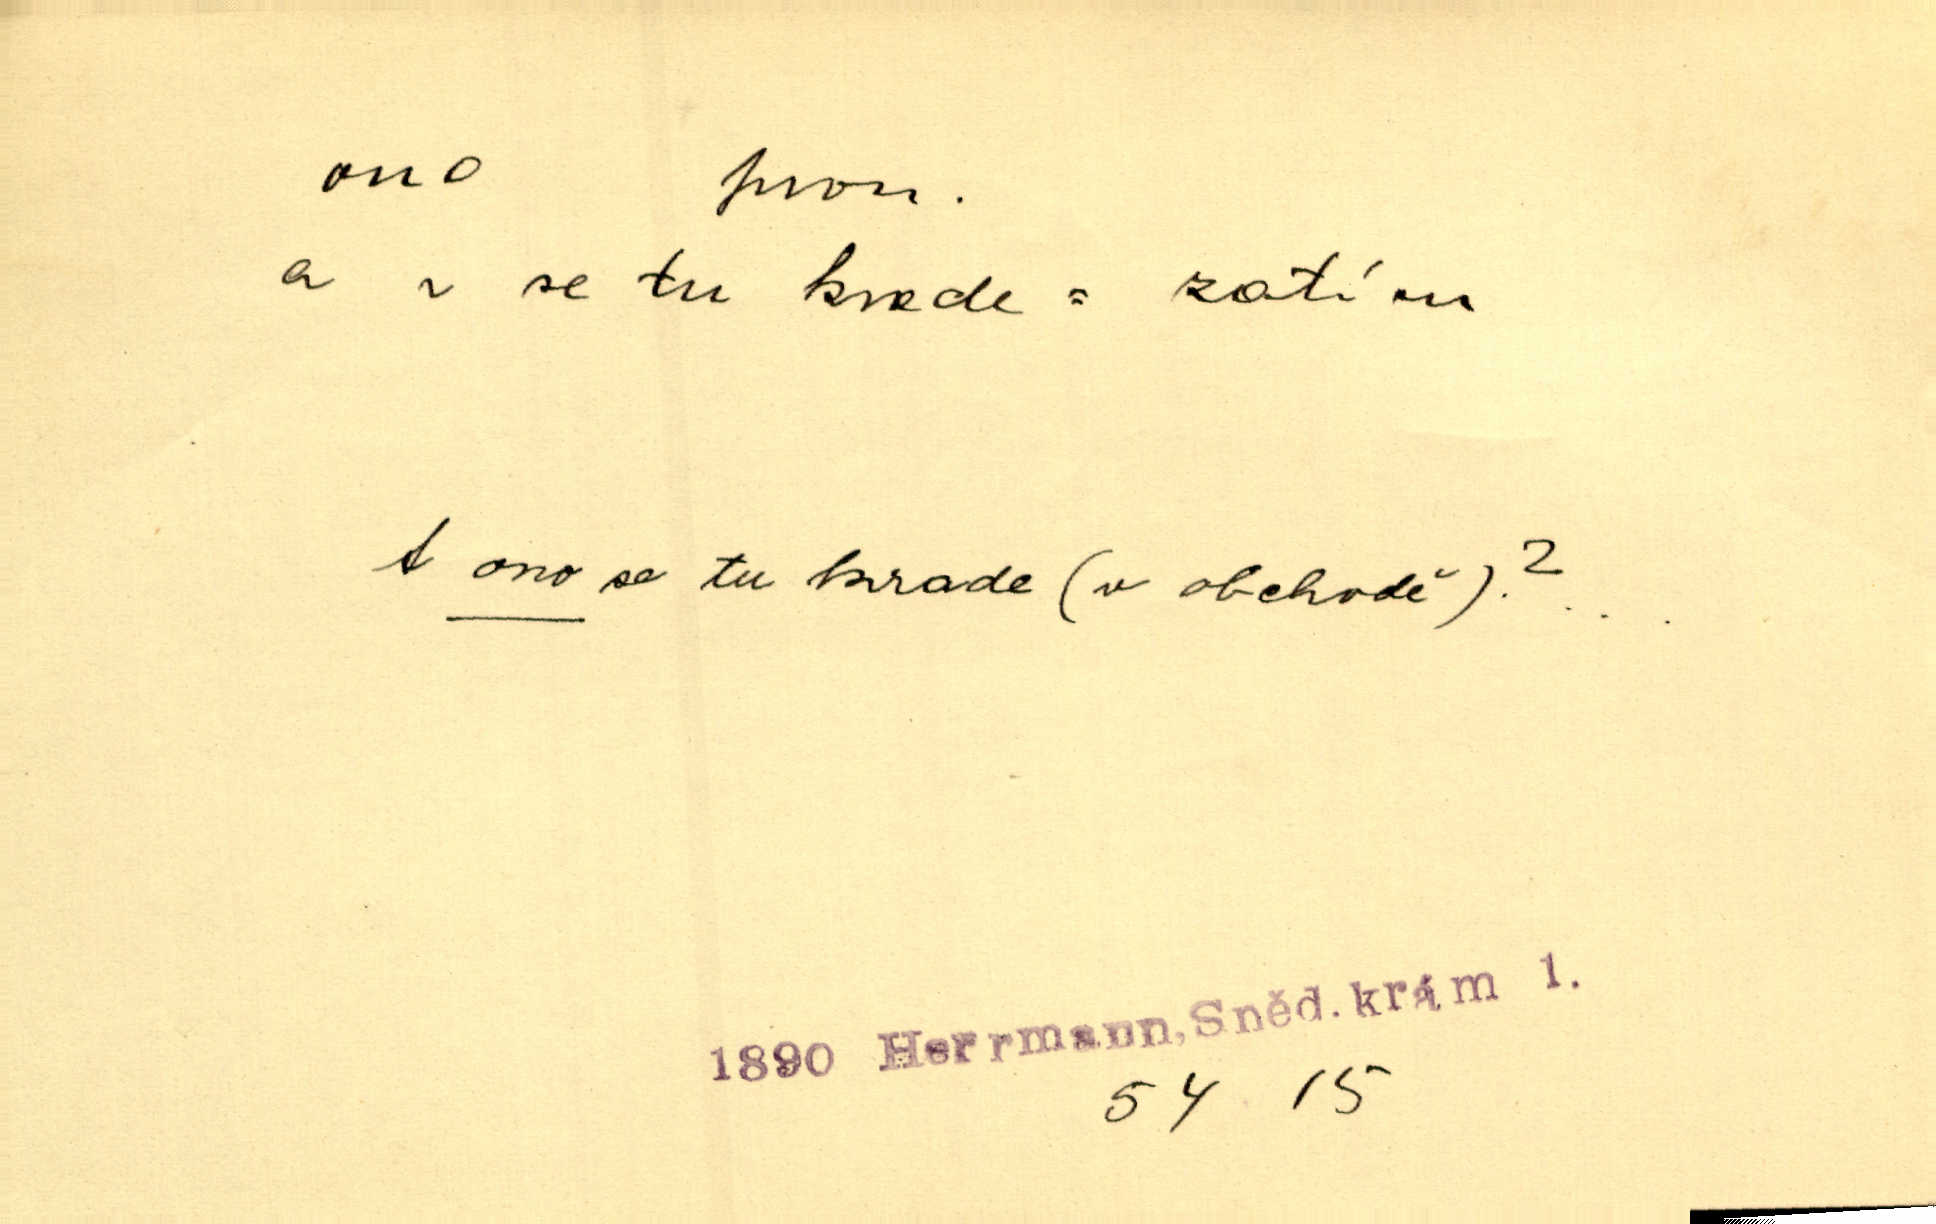 ono pron.
a ~ se tu krade = zatím
A ono se tu krade (v obchodě)?...
1890 Herrmann, Sněd. krám 1.
54 15